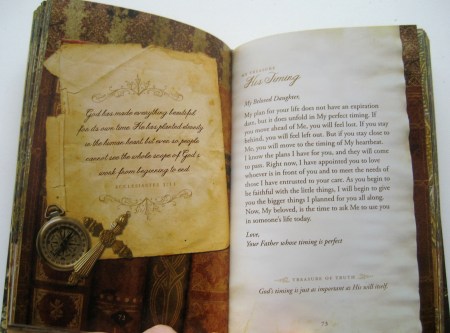 God has made everything beautiful
for its own time. He has planted eternity
in the human heart, but even so, people
cannot see the whole scope of God's
work from beginning to end.
ECCLESIASTES 3:11
72
MY TREASURE
His Timing
My Beloved Daughter,
My plan for your life does not have an expiration
date, but it does unfold in My perfect timing. If
you move ahead of Me, you will feel lost. If you stay
behind, you will feel left out. But if you stay close to
Me, you will move to the timing of My heartbeat.
I know the plans I have for you, and they will come
to pass. Right now, I have appointed you to love
whoever is in front of you and to meet the needs of
those I have entrusted to your care. As you begin to
be faithful with the little things, I will begin to give
you the bigger things I planned for you all along.
Now, My beloved, is the time to ask Me to use you
in someone's life today.
Love,
Your Father whose timing is perfect
TREASURE OF TRUTH
God's timing is just as important as His will itself.
73